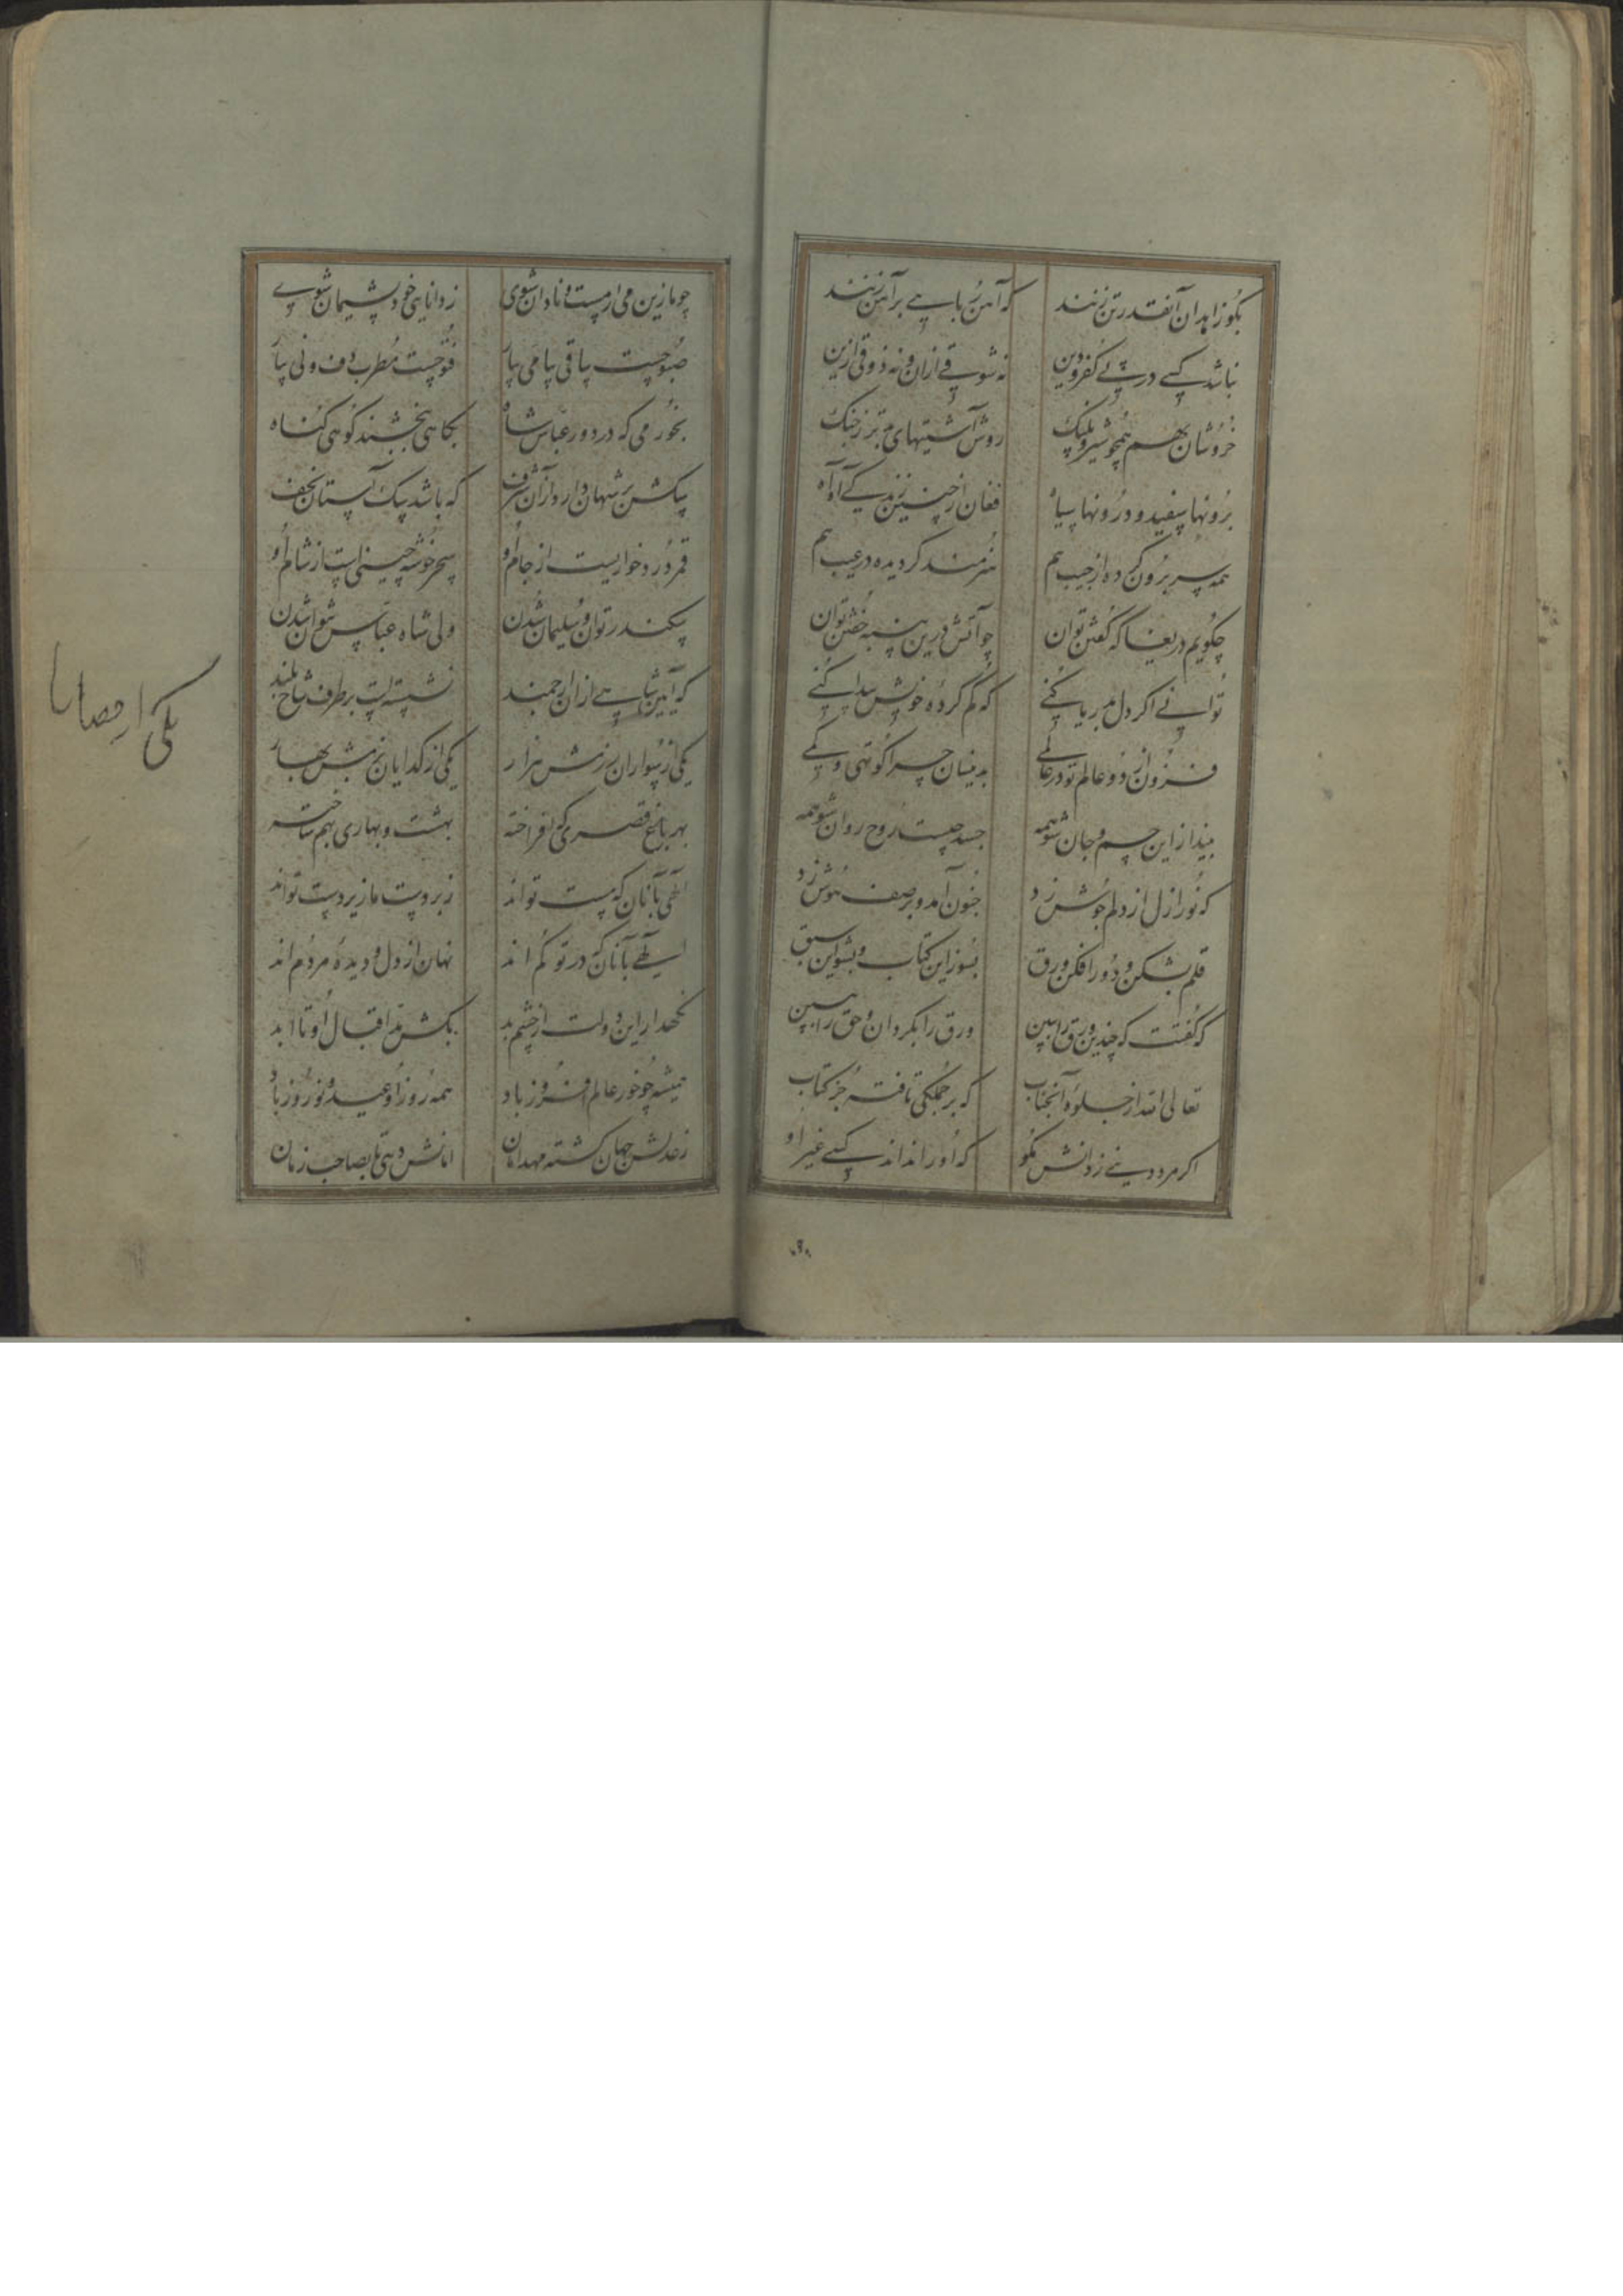 بگو زاهدان آنقدر تن زنند که آهن ربایی بر آهن زنند
نباشد کسی در پی کفر و دین نه شوقی ازان و نه ذوقی ازین
خروشان بهم همچو شیر و پلنک روش آشتیهای بدتر ز جنک
برونها سفید و درونها سیاه فغان از چنین زندگی آه آه
همه سر برون کرده از جیب هم هنرمند کردیده در عیب هم
چکویم دریغا که گفتن توان چو آتش درین پنبه خفتن توان
توانی اکر دل بدریا کنی که کم کرده خویش پیدا کنی
فزون از دو عالم تو در عالمی بدینسان چرا کوتهی و کمی
بینداز این جسم و جان شو همه جسد چیست روح روان شو همه
که نور ازل از دلم جوش زد جنون آمد و بر صف هوش زد
قلم بشکن و دور افکن ورق بسوز این کتاب و بشو این سبق
که گفتت که چندین ورق را ببین ورق را بکردان و حق را ببین
تعالی الله از جلوه آنجناب که بر جملکی تافته جز کتاب
اکر مرد دینی ز دانش مکو که او را نداند کسی غیر او
چو ما زین می ار مست و نادان شوی ز دانایی خود پشیمان شوی
صبوحیست ساقی بیا می بیار فتوحیست مطرب دف و نی بیار
بخور می که در دور عباس شاه بکاهی ببخشند کوهی کناه
سکش بر شهان دارد از آن شرف که باشد سک آستان نجف
قمر درد خواریست از جام او سحر خوشه چینی است از شام او
سکندر توان و سلیمان شدن ولی شاه عباس نتوان شدن
که آیین شاهی ازان ارجمند نشسته است بر طرف شاخ بلند
یکی از سواران رزمش هزار یکی از کدایان بزمش بهار
بهر باغ قصری کی افراخته بهشت و بهاری بهم ساخته
الهی بآنان که مست تواند زبردست ما زیردست تواند
الهی بآنان که در تو گم اند نهان از دل و دیده مردم اند
نکهدار این دولت از چشم بد بکش مد اقبال او تا ابد
همیشه چو خور عالم افروز باد همه روز او عید و نوروز باد
ز عدلش جهان کشته مهد امان امانش دهی تا بصاحب زمان